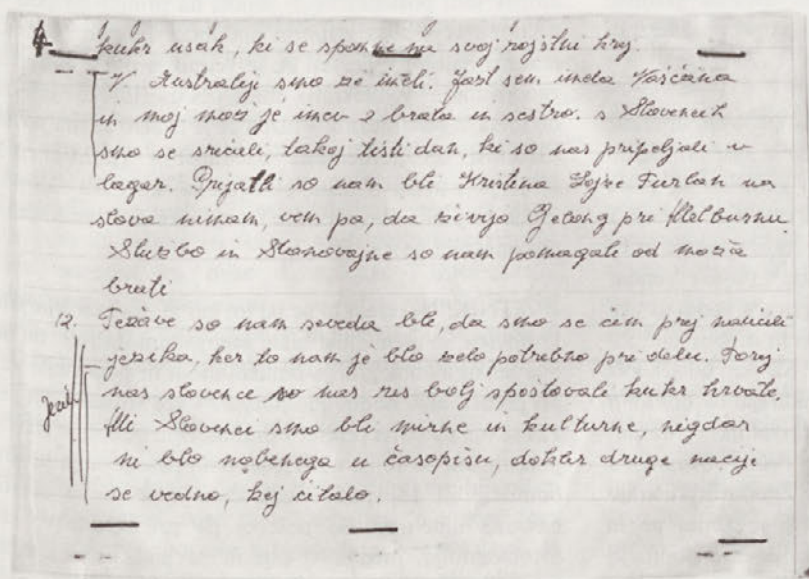 kukr usak, ki se spomne na svoj rojstni kraj.
V Australiji smo že imeli. Jast sem imela Vaščana
in moj mož je imev 2 brata in sestro. s Slovencih
smo se srečali, takoj tisti dan, ki so nas pripeljali v
lagar. Prijatli so nam bli Kristina Lojze Furlan na
slova nimam, vem pa, da živijo Gelong pri Melburnu.
Službo in Stanovajne so nam pomagali od moža
brati
12. Težave so nam seveda ble, da smo se čim prej naučili
jezika, ker to nam je blo zelo potrebno pri delu. Torej
nas slovence so nas res bolj spoštovali kukr hrvate.
Mi Slovenci smo bli mirne in kulturne, nigdar
ni blo nobenega u časopisu, dokler druge nacije
se vedno, kej čitalo.